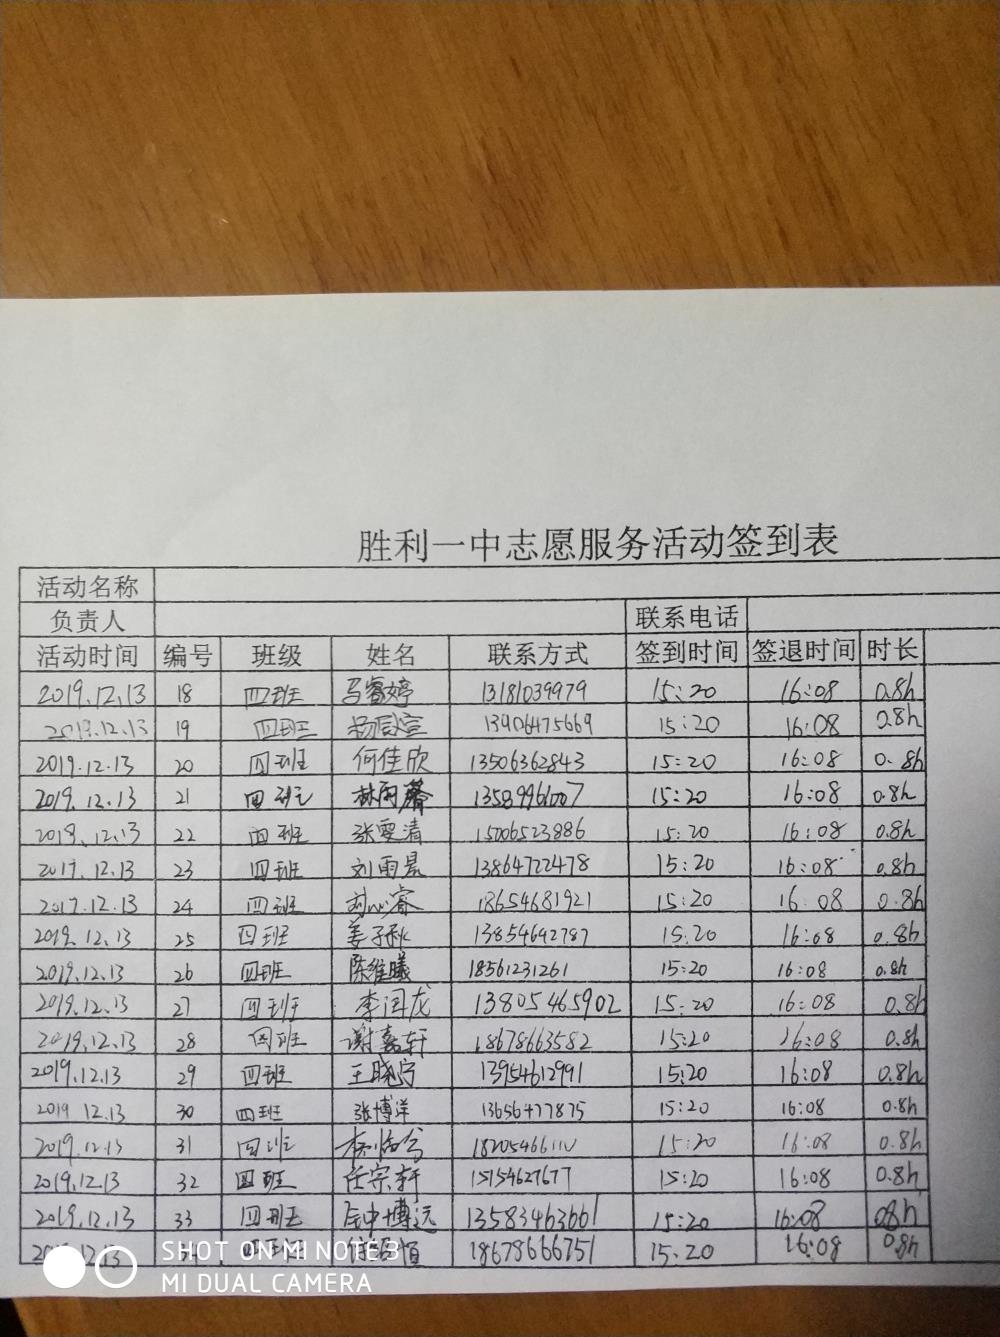 胜利一中志愿服务活动签到表
活动名称
负责人 联系电话
活动时间 编号 班级 姓名 联系方式 签到时间 签退时间 时长
2019.12.13 18 四班 马睿婷 13181039979 15:20 16:08 0.8h
2019.12.13 19 四班 杨宸萱 13906475669 15:20 16:08 0.8h
2019.12.13 20 四班 何佳欣 13506362843 15:20 16:08 0.8h
2019.12.13 21 四班 林雨馨 13589961007 15:20 16:08 0.8h
2019.12.13 22 四班 张雯清 15006523886 15:20 16:08 0.8h
2017.12.13 23 四班 刘雨晨 13864722478 15:20 16:08 0.8h
2017.12.13 24 四班 18654681921 15:20 16:08 0.8h
2019.12.13 25 四班 姜子秋 13854692787 15:20 16:08 0.8h
2019.12.13 26 四班 陈维曦 18561231261 15:20 16:08 0.8h
2019.12.13 27 四班 李闰龙 13805465902 15:20 16:08 0.8h
2019.12.13 28 四班 谢嘉轩 18678663582 15:20 16:08 0.8h
2019.12.13 29 四班 王晓宁 13954612991 15:20 16:08 0.8h
2019 12.13 30 四班 张博洋 13656477875 15:20 16:08 0.8h
2019.12.13 31 四班 15:20 16:08 0.8h
2019.12.13 32 四班 任宗轩 15154627677 15:20 16:08 0.8h
2019.12.13 33 四班 博远 13583463661 15:20 16:08 0.8h
12.13 恒 18678666751 15:20 16:08 0.8h
SHOT ON MI NOTE 3
MI DUAL CAMERA